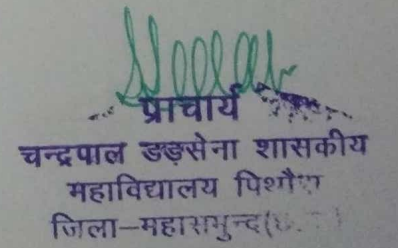 प्राचार्य
चन्द्रपाल डड़सेना शासकीय
महाविद्यालय पिथौरा
जिला–महासमुन्द